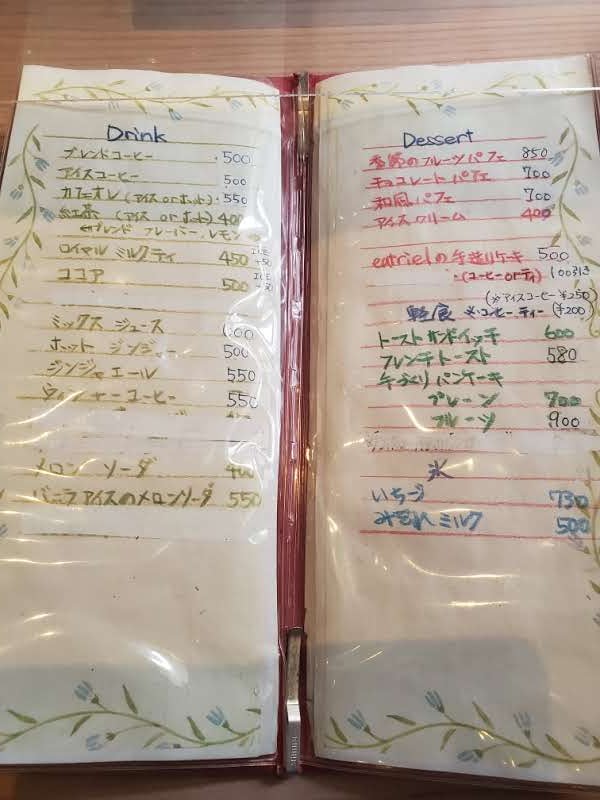 Drink
ブレンドコーヒー ・500
アイスコーヒー 500
カフェオレ (アイス or ホット)・550
紅茶 (アイス or ホット) 400
ブレンド フレーバー レモン
ロイヤル ミルクティ 450 ICE +50
ココア 500 ICE +50
ミックス ジュース 600
ホット ジンジャー 500
ジンジャエール 550
ウィンナーコーヒー 550
メロンソーダ 400
バニラアイスのメロンソーダ 550
Dessert
季節のフルーツパフェ 850
チョコレートパフェ 700
和風パフェ 700
アイスクリーム 400
の手造りケーキ 500
・(コーヒー or ティ) 100引き
(※アイスコーヒー ¥250)
軽食 ※コーヒー ティー (¥200)
トーストサンドイッチ 600
フレンチトースト 580
手づくりパンケーキ
プレーン 700
フルーツ 900
氷
いちご 730
みぞれミルク 500